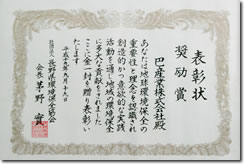 表彰状
奨励賞
巴産業株式会社殿
あなたは地球環境保全の
重要性と理念を認識され
創造的かつ意欲的な実践
活動を通し地域の環境保全
に多大な貢献をされました
ここに金一封を贈り表彰い
たします
平成十五年九月十八日
社団法人長野県環境保全協会
会長 茅野實